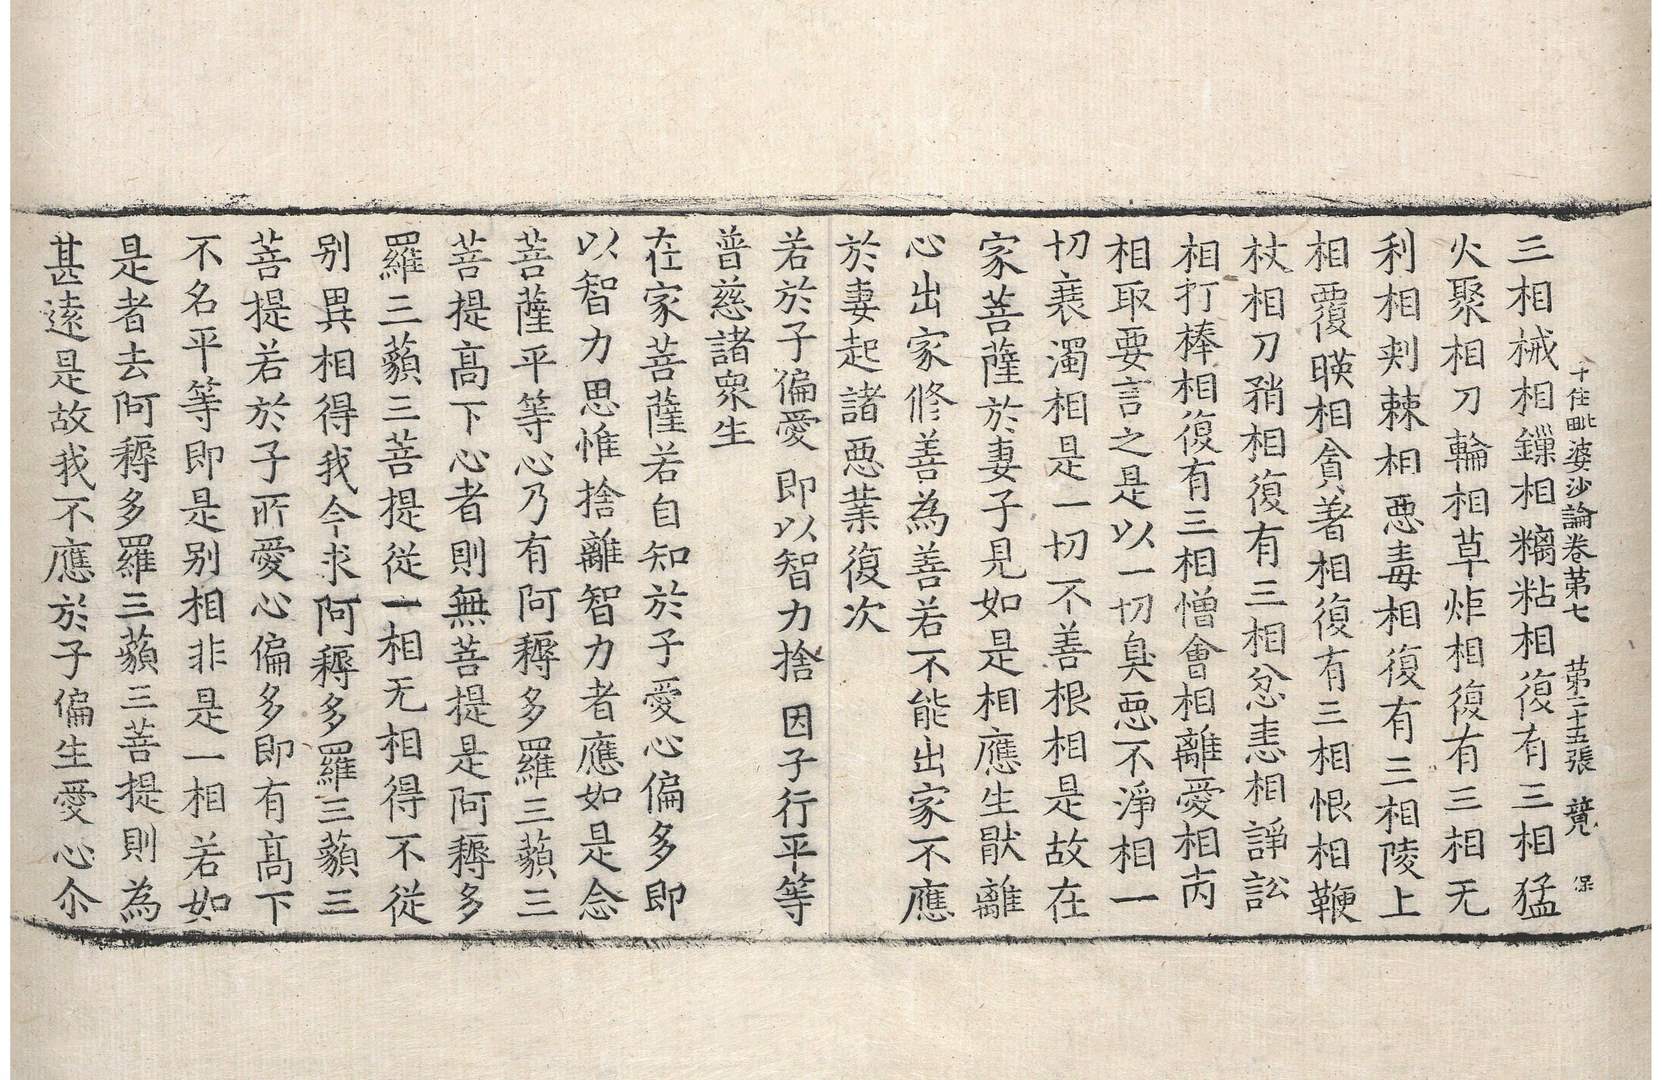 十住毗婆沙論卷第七 第二十五張 競 保
三相械相鏁相黐粘相復有三相猛
火聚相刀輪相草炬相復有三相无
利相刺棘相惡毒相復有三相陵上
相覆暎相貪著相復有三相恨相鞭
杖相刀矟相復有三相忿恚相諍訟
相打棒相復有三相憎會相離愛相㽱
相取要言之是以一切臭惡不淨相一
切衰濁相是一切不善根相是故在
家菩薩於妻子見如是相應生猒離
心出家修善為善若不能出家不應
於妻起諸惡業復次
若於子偏愛 即以智力捨 因子行平等
普慈諸眾生
在家菩薩若自知於子愛心偏多即
以智力思惟捨離智力者應如是念
菩薩平等心乃有阿耨多羅三藐三
菩提高下心者則無菩提是阿耨多
羅三藐三菩提從一相无相得不從
别異相得我今求阿耨多羅三藐三
菩提若於子所愛心偏多即有高下
不名平等即是别相非是一相若如
是者去阿耨多羅三藐三菩提則為
甚遠是故我不應於子偏生愛心尒